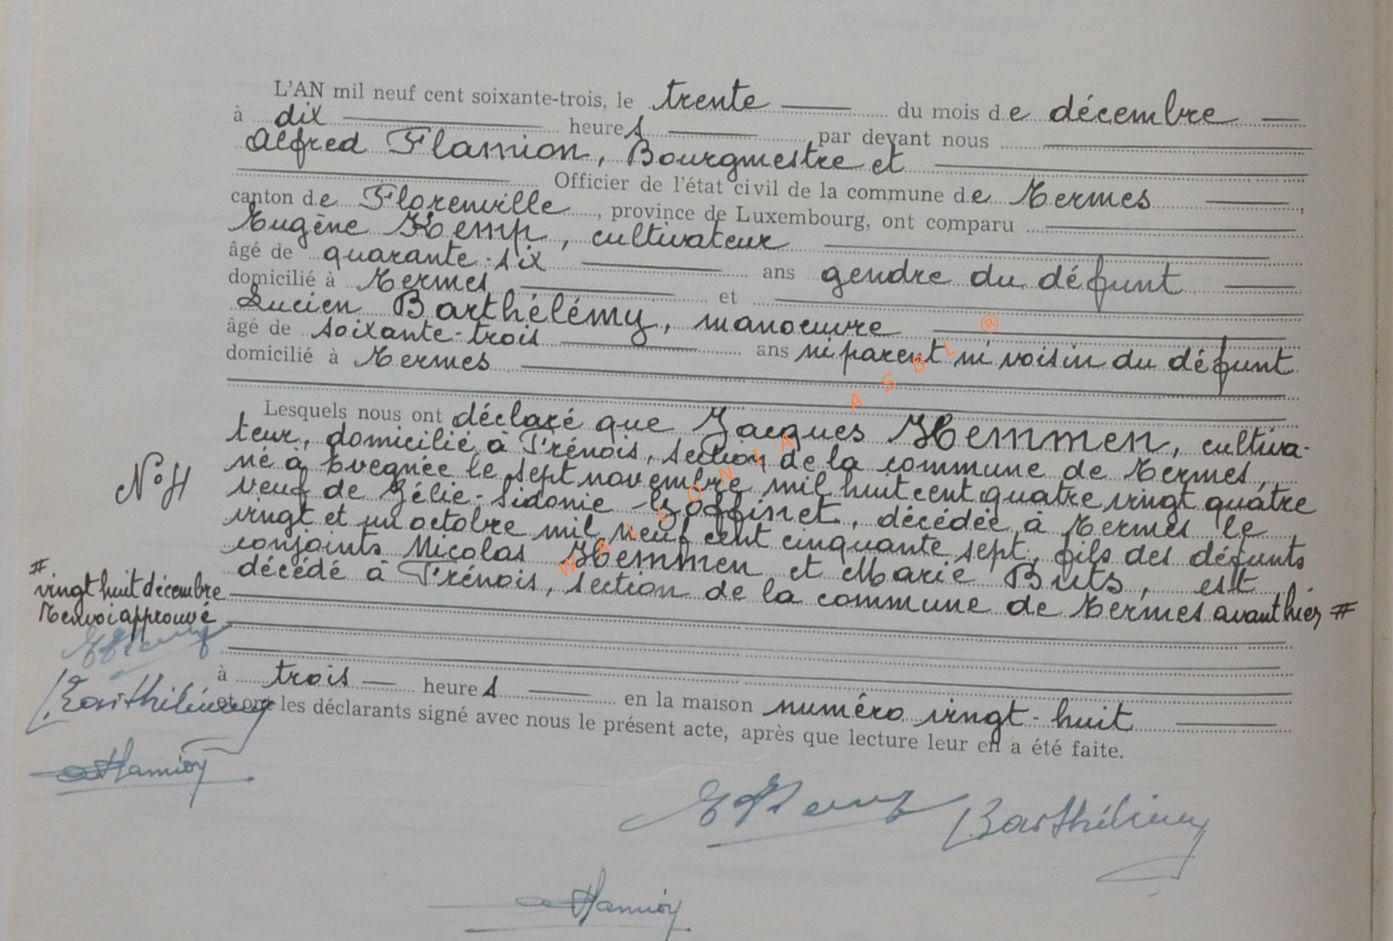 L'AN mil neuf cent soixante-trois, le trente du mois de décembre
à dix heures par devant nous
Alfred Flamion, Bourgmestre et
Officier de l'état civil de la commune de Termes
canton de Florenville, province de Luxembourg, ont comparu
Eugène Kemp, cultivateur
âgé de quarante-six ans gendre du défunt
domicilié à Termes et
Lucien Barthélémy, manoeuvre
âgé de soixante-trois ans ni parent ni voisin du défunt
domicilié à Termes
Lesquels nous ont déclaré que Jacques Hemmen, cultiva-
teur, domicilié à Frénois, section de la commune de Termes,
né à le sept novembre mil huit cent quatre vingt quatre
N° 11
veuf de Zélie-Sidonie Goffinet, décédée à Termes le
vingt et un octobre mil neuf cent cinquante sept, fils des défunts
conjoints Nicolas Hemmen et Marie est
décédé à Frénois, section de la commune de Termes avant hier #
#
vingt huit décembre
Renvoi approuvé
Barthélémy
Flamion
à trois heures en la maison numéro vingt-huit
et ont les déclarants signé avec nous le présent acte, après que lecture leur en a été faite.
EKemp Barthélémy
Flamion
WALLONIA ASBL ®